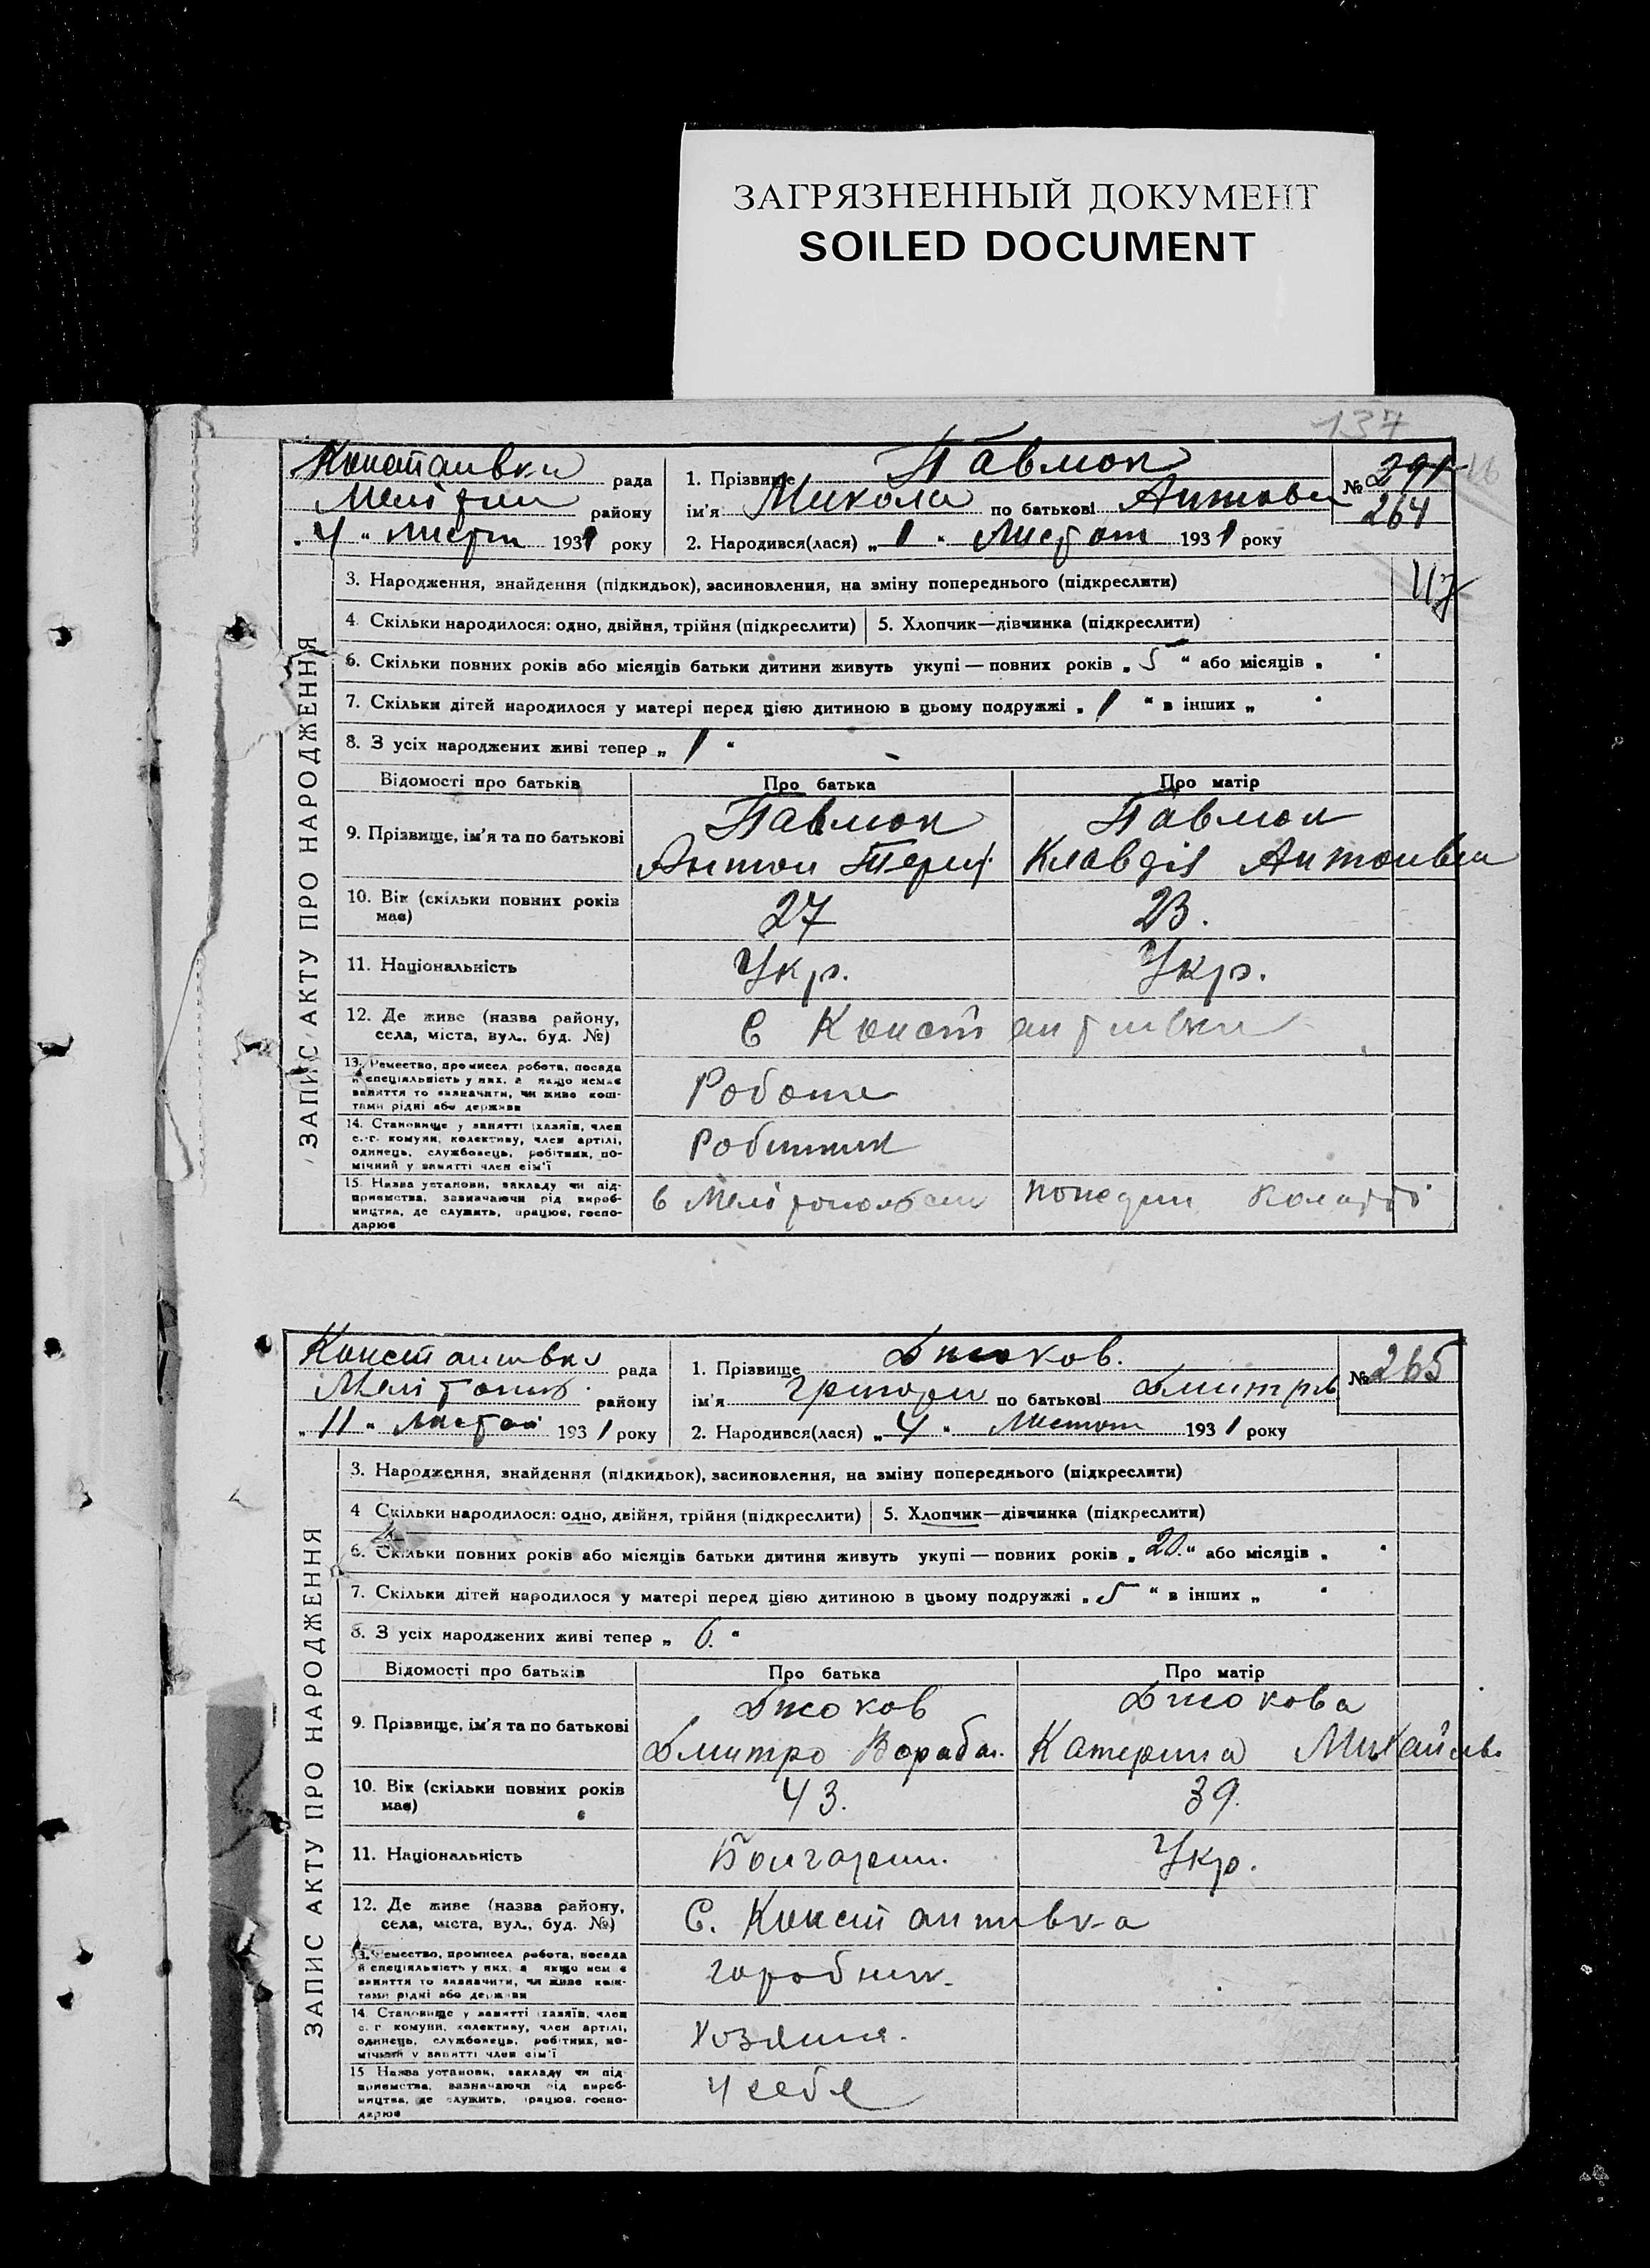 ЗАГРЯЗНЕННЫЙ ДОКУМЕНТ
SOILED DOCUMENT
137
рада
району
4 1931 року
1. Прізвище Павлюк
ім'я Микола по батькові Антонов
2. Народився(лася) „ 1 “ Листоп 1931 року
№ 291
264
ЗАПИС АКТУ ПРО НАРОДЖЕННЯ
3. Народження, знайдення (підкидьок), засиновлення, на зміну попереднього (підкреслити)
4. Скільки народилося: одно, двійня, трійня (підкреслити) 5. Хлопчик—дівчинка (підкреслити)
6. Скільки повних років або місяців батьки дитини живуть укупі — повних років „ 5 “ або місяців „ “
7. Скільки дітей народилося у матері перед цією дитиною в цьому подружжі „ 1 “ в інших „ “
8. З усіх народжених живі тепер „ 1 “
Відомості про батьків Про батька Про матір
9. Прізвище, ім'я та по батькові
Павлюк Павлюк
Антон Клавдія Антонівна
10. Вік (скільки повних років має) 27 23.
11. Національність Укр. Укр.
12. Де живе (назва району,
села, міста, вул., буд. №)
С
13. Ремество, промисел робота, посада
й спеціяльність у них, а якщо немає
заняття то зазначити, чи живе кош-
тами рідні або держави
14. Становище у занятті (хазяїн, член
с.-г. комуни, колективу, член артілі,
одинець, службовець, робітник, по-
мічний у занятті член сім'ї
Робітник
15. Назва установи, закладу чи під-
приємства, зазначаючи рід вироб-
ництва, де служить, працює, госпо-
дарює
в
рада
району
„ 11 “ 1931 року
1. Прізвище Джоков.
ім'я Григорій по батькові Дмитрів
2. Народився(лася) „ 4 “ Листоп 1931 року
№ 265
ЗАПИС АКТУ ПРО НАРОДЖЕННЯ
3. Народження, знайдення (підкидьок), засиновлення, на зміну попереднього (підкреслити)
4 Скільки народилося: одно, двійня, трійня (підкреслити) 5. Хлопчик—дівчинка (підкреслити)
6. Скільки повних років або місяців батьки дитини живуть укупі — повних років „ 20. “ або місяців „ “
7. Скільки дітей народилося у матері перед цією дитиною в цьому подружжі „ 5 “ в інших „ “
8. З усіх народжених живі тепер „ 6. “
Відомості про батьків Про батька Про матір
9. Прізвище, ім'я та по батькові
Джоков Джокова
Дмитро Катерина Михайлів
10. Вік (скільки повних років має) 43. 39.
11. Національність Болгарин. Укр.
12. Де живе (назва району,
села, міста, вул., буд. №)
С. Константинівка
13. Ремество, промисел робота, посада
й спеціяльність у них, а якщо нема є
заняття то зазначити, чи живе кош-
тами рідні або держави
городник.
14. Становище у занятті (хазяїн, член
с.-г комуни, колективу, член артілі,
одинець, службовець, робітник, по-
мічний у занятті член сім'ї
хозяин.
15 Назва установи, закладу чи під-
приємства, зазначаючи рід вироб-
ництва, де служить, працює, госпо-
дарює
у себе